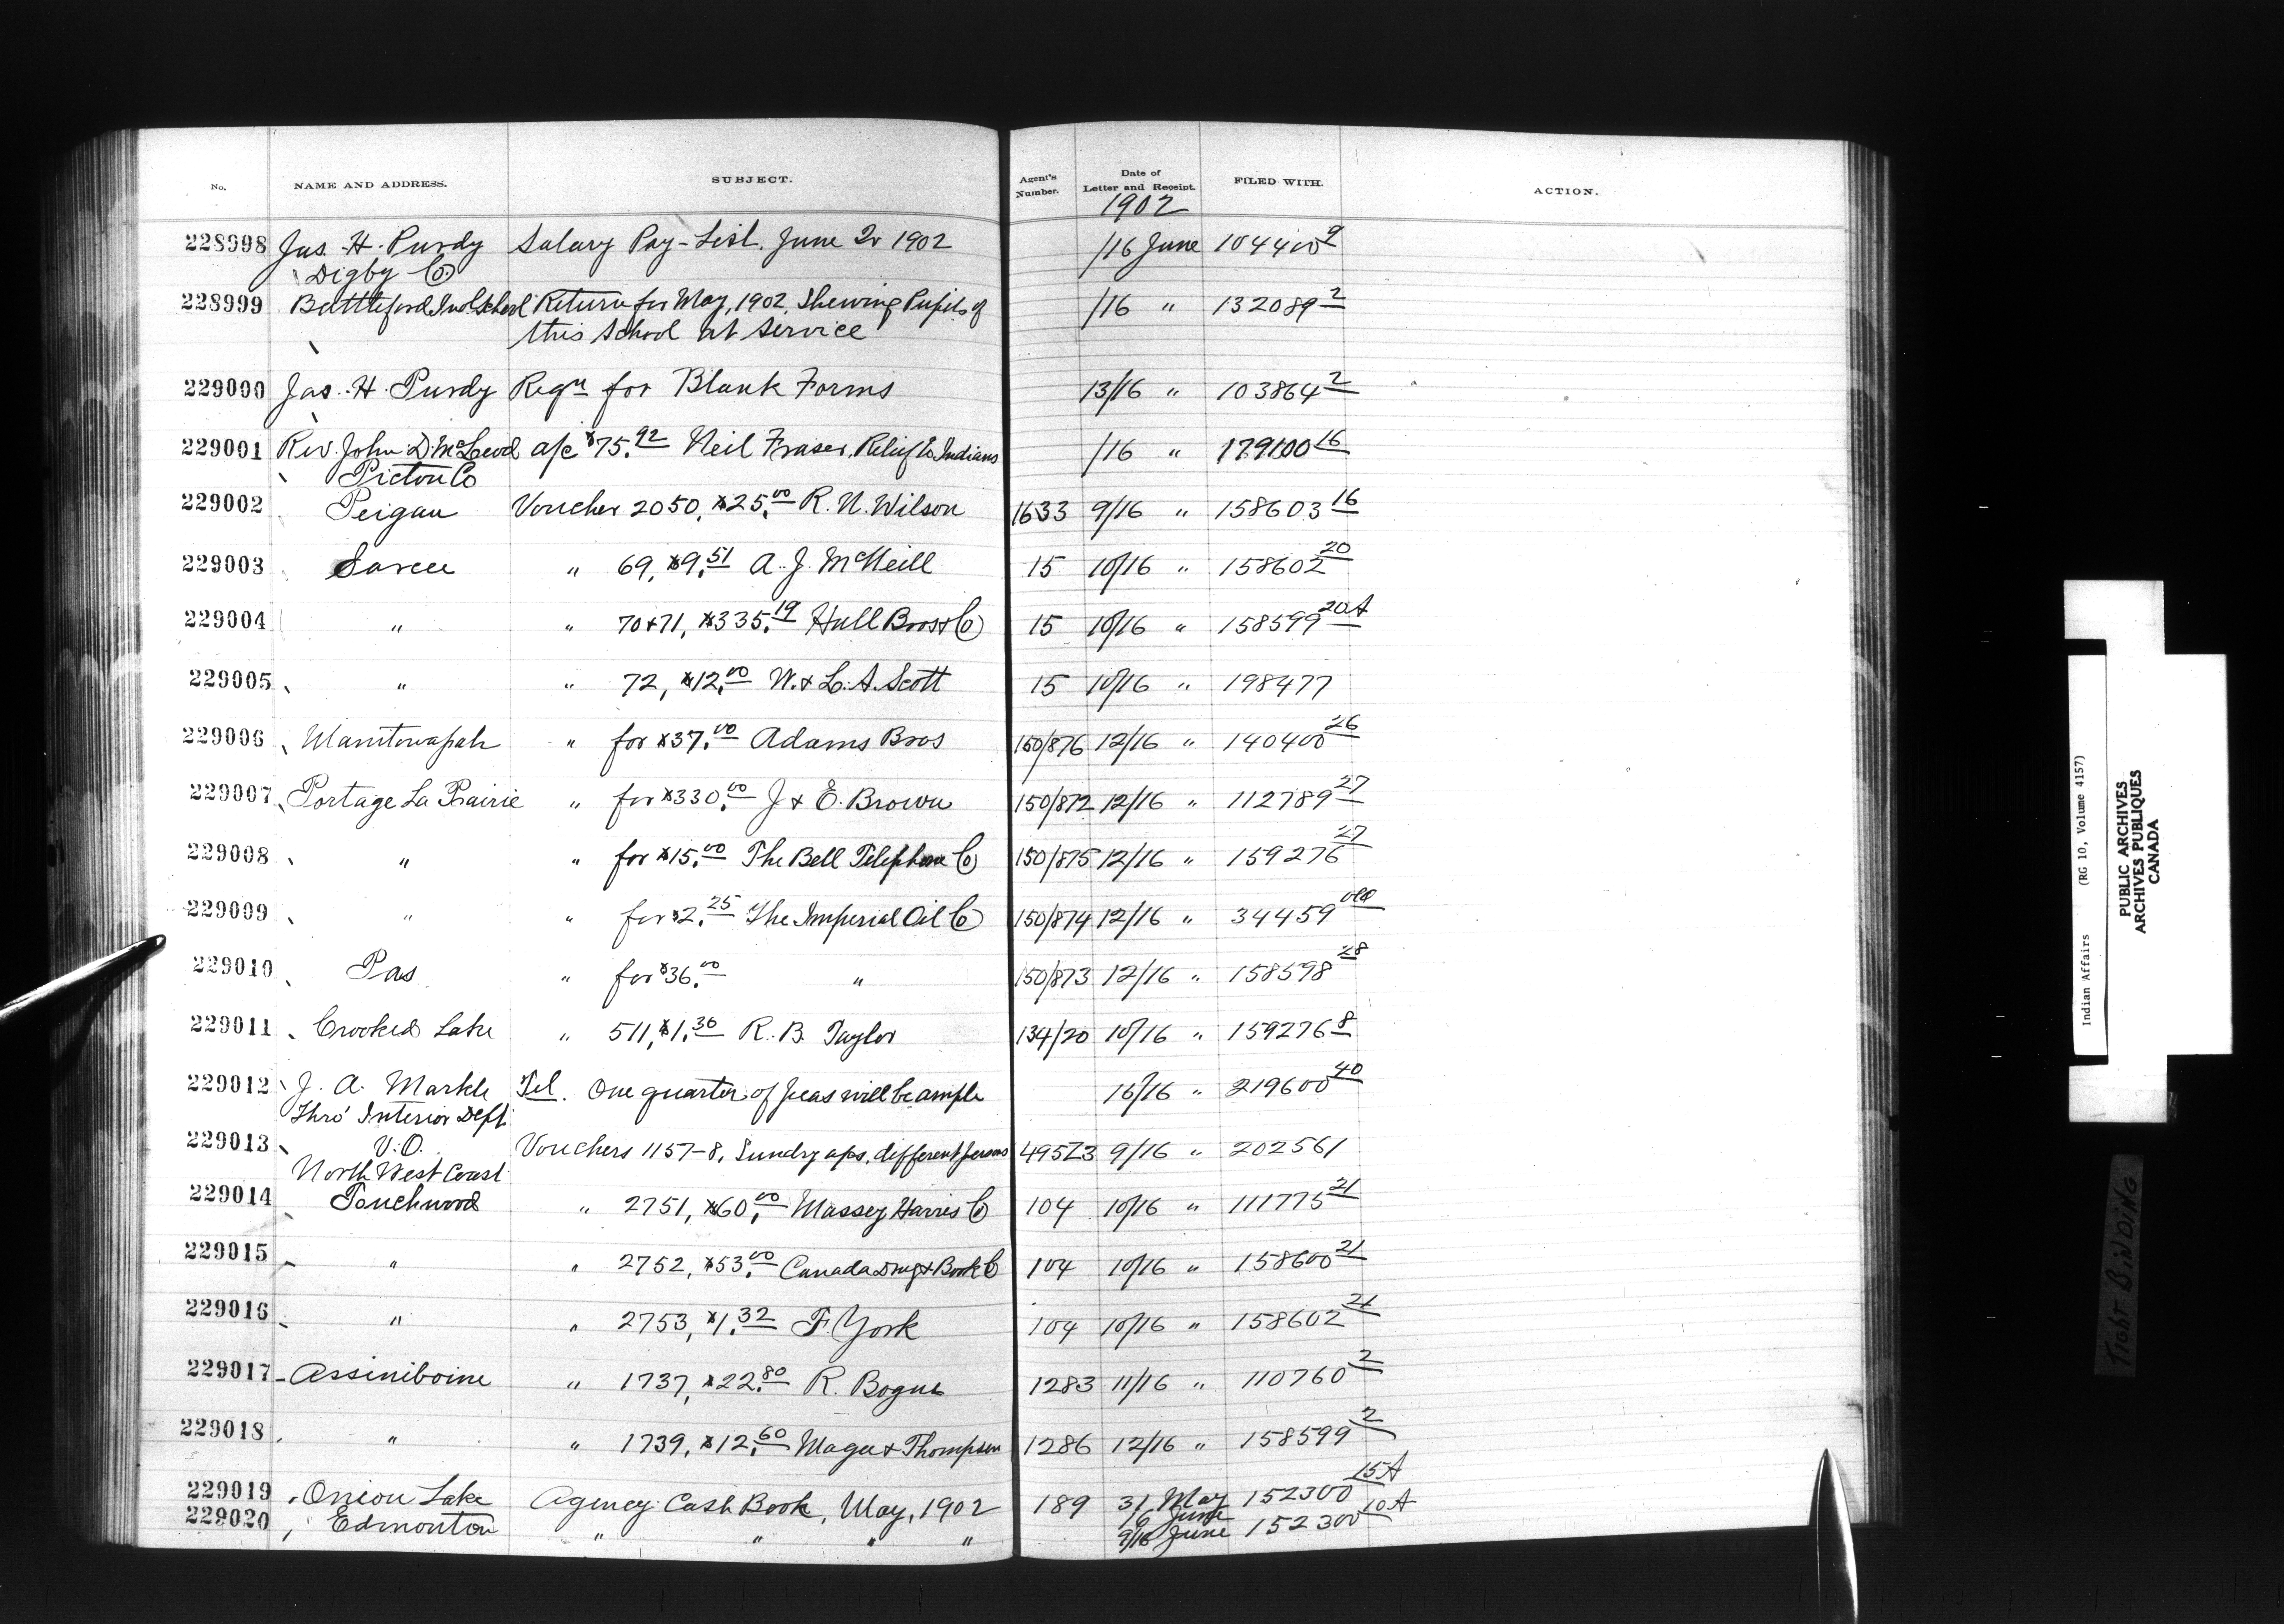 No. NAME AND ADDRESS. SUBJECT. Agent's Number. Date of Letter and Receipt. FILED WITH. ACTION.
1902
228998 Jas. H. Purdy Salary Pay-List. June 2r 1902 /16 June 104400 9
Digby Co
228999 Battleford Ind. School Return for May, 1902, Shewing Pupils of /16 " 132089 2
this School at Service
229000 Jas. H. Purdy Reqn for Blank Forms 13/16 " 103864 2
229001 Rev. John D. McLeod a/c $75.92 Neil Fraser, Relief to Indians /16 " 179100 16
Pictou Co
229002 Peigan Voucher 2050, $25.00 R. N. Wilson 1633 9/16 " 158603 16
229003 Sarcee " 69, $9.51 A. J. McNeill 15 10/16 " 158602 20
229004 " " 70+71, $335.19 Hull Bros & Co 15 10/16 " 158599 20A
229005 " " 72, $12.00 W. & L. A. Scott 15 10/16 " 198477
229006 Manitowapah " for $37.00 Adams Bros 150/876 12/16 " 140400 26
229007 Portage La Prairie " for $330.00 J & E. Brown 150/872 12/16 " 112789 27
229008 " " for $15.00 The Bell Telephone Co 150/875 12/16 " 159276 27
229009 " " for $2.25 The Imperial Oil Co 150/874 12/16 " 34459 old
229010 Pas " for $36.00 " 150/873 12/16 " 158598 28
229011 Crooked Lake " 511, $1.36 R. B. Taylor 134/20 10/16 " 159276 8
229012 J. A. Markle Tel. One quarter of peas will be ample 16/16 " 219600 40
Thro' Interior Dept
229013 V.O. Vouchers 1157-8, Sundry a/cs, different persons 495Z3 9/16 " 202561
North West Coast
229014 Touchwood " 2751, $60.00 Massey Harris Co 104 10/16 " 111775 21
229015 " " 2752, $53.00 Canada Drug & Book Co 104 10/16 " 158600 21
229016 " " 2753, $1.32 F. York 104 10/16 " 158602 21
229017 Assiniboine " 1737, $22.80 R. Bogue 1283 11/16 " 110760 2
229018 " " 1739, $12.60 Magee & Thompson 1286 12/16 " 158599 2
229019 Onion Lake Agency Cash Book, May, 1902 189 31 May 152300 15A
16 June
229020 Edmonton " " " " 9/16 June 152300 10A
Indian Affairs (RG 10, Volume 4157)
PUBLIC ARCHIVES
ARCHIVES PUBLIQUES
CANADA
TIGHT BINDING